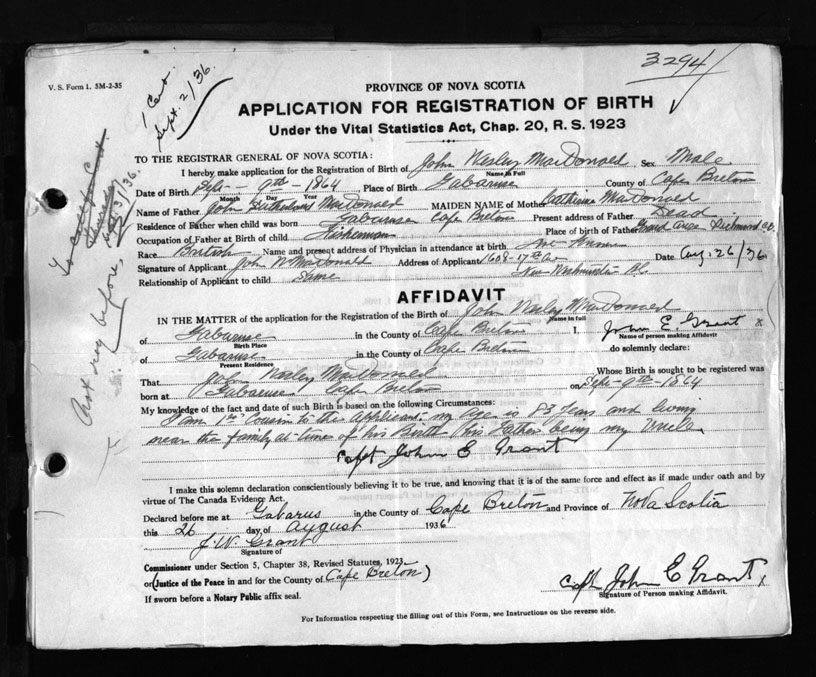 3294
V. S. Form 1. 5M-2-35
1 Cert.
Sept. 2/36.
PROVINCE OF NOVA SCOTIA
APPLICATION FOR REGISTRATION OF BIRTH
Under the Vital Statistics Act, Chap. 20, R. S. 1923
TO THE REGISTRAR GENERAL OF NOVA SCOTIA:
I hereby make application for Registration of Birth of John Wesley MacDonald, Sex Male
Name in Full
Date of Birth Sept- 9th- 1864 Place of Birth Gabaruse County of Cape Breton
Month Day Year
Name of Father John MacDonald MAIDEN NAME of Mother Catherine MacDonald
Residence of Father when child was born Gabaruse Cape Breton Present address of Father Dead
Occupation of Father at Birth of child Fisherman Place of birth of Father Grand Anse Richmond Co.
Race British Name and present address of Physician in attendance at birth
Signature of Applicant John W MacDonald Address of Applicant 1608-17th Ave Date Aug. 26/36
Relationship of Applicant to child Same New Westminster B.C.
AFFIDAVIT
IN THE MATTER of the application for Registration of the Birth of John Wesley MacDonald
Name in full
of Gabaruse in the County of Cape Breton I, John E. Grant
Birth Place Name of person making Affidavit
of Gabaruse in the County of Cape Breton do solemnly declare:
Present Residence
That John Wesley MacDonald Whose Birth is sought to be registered was
born at Gabaruse Cape Breton on Sept- 9th- 1864
My knowledge of the fact and date of such Birth is based on the following Circumstances:
I am 1st Cousin to the Applicant my age is 83 years and living
near the family at time of his Birth his Father being my Uncle.
Capt John E Grant
I make this solemn declaration conscientiously believing it to be true, and knowing that it is of the same force and effect as if made under oath and by
virtue of The Canada Evidence Act.
Declared before me at Gabarus in the County of Cape Breton and Province of Nova Scotia
this 26 day of August 1936
J. W. Grant
Signature of
Commissioner under Section 5, Chapter 38, Revised Statutes, 1923
or (Justice of the Peace in and for the County of Cape Breton)
Capt John E Grant
Signature of Person making Affidavit.
If sworn before a Notary Public affix seal.
For Information respecting the filling out of this Form, see Instructions on the reverse side.